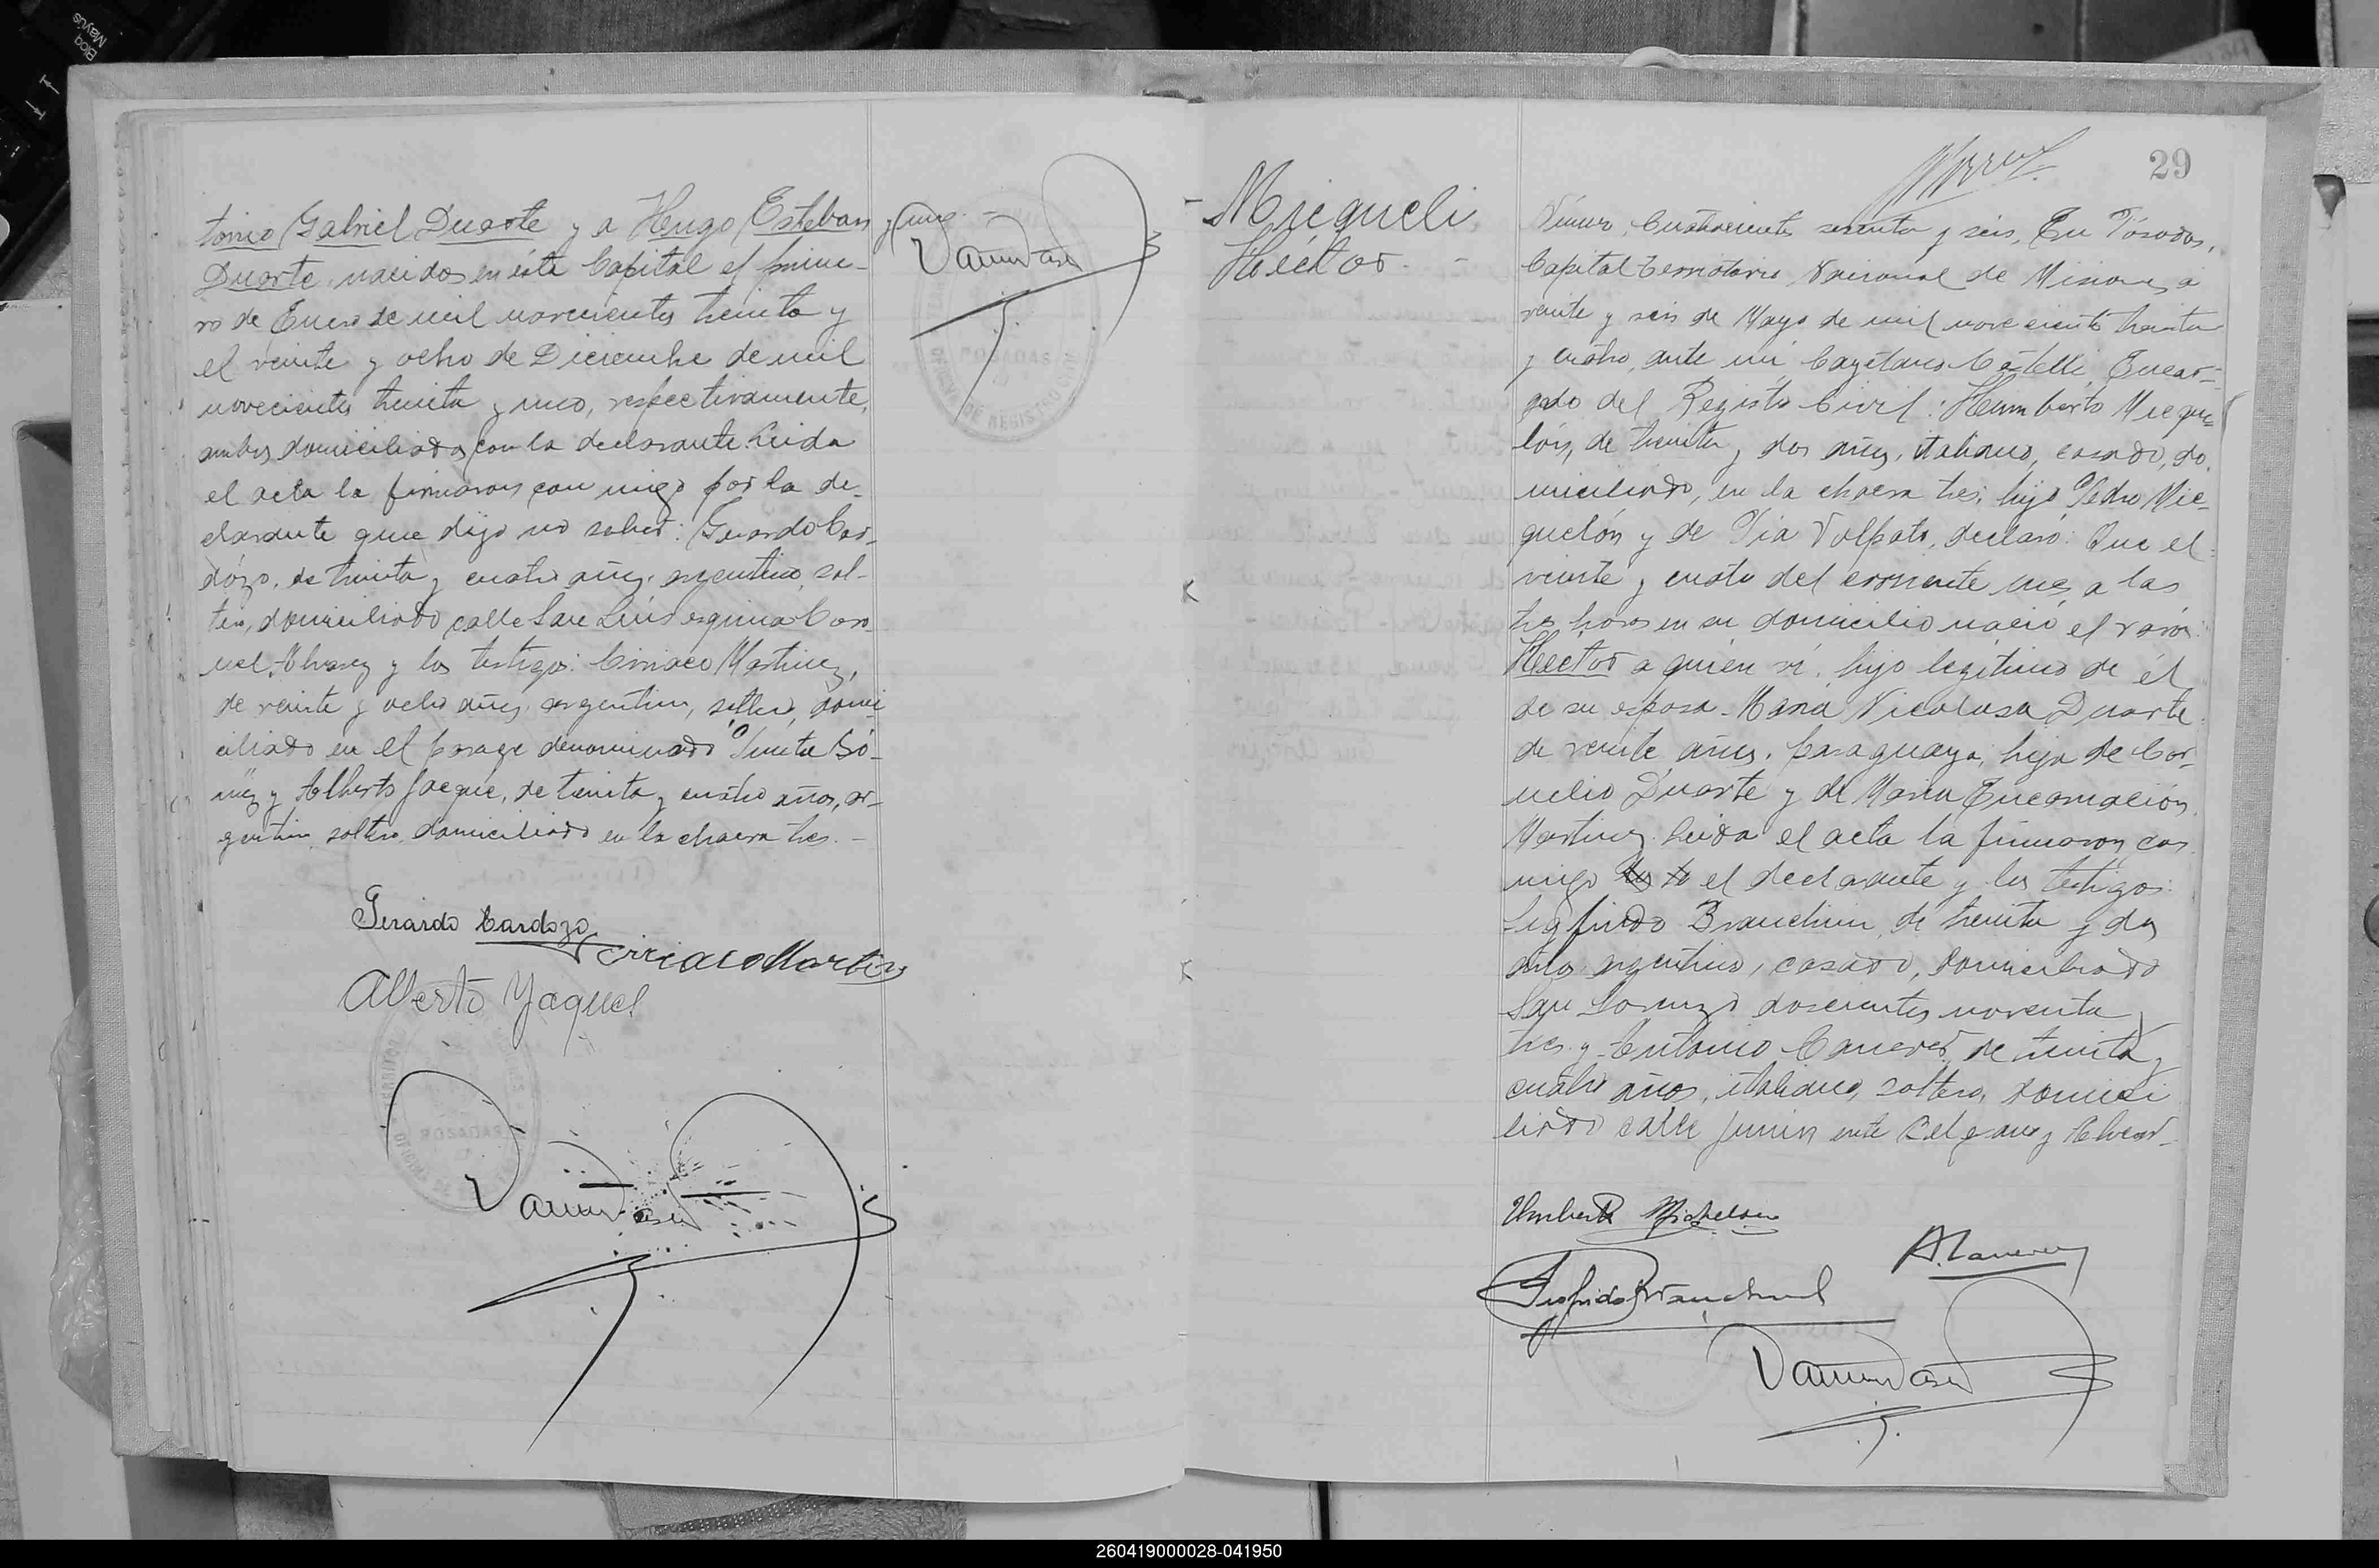 tonio Gabriel Duarte y a Hugo Esteban
Duarte, nacidos en ésta Capital el prime-
ro de Enero de mil novecientos treinta y
el veinte y ocho de Diciembre de mil
novecientos treinta y uno, respectivamente,
ambos domiciliados con la declarante. Leida
el acta la firmaron con migo por la de-
clarante que dijo no saber: Gerardo Car-
dózo, de treinta y cuatro años, argentino, sol-
tero, domiciliado calle San Luis esquina Coro-
nel Alvarez y los testigos: Ciriaco Martinez,
de veinte y ocho años, argentino, soltero, domi
ciliado en el parage denominado
y Alberto Jaque, de treinta y cuatro años, ar-
gentino, soltero, domiciliado en la chacra tres. -
Gerardo Cardozo
Ciriaco Martinez
Alberto Yaquel
POSADAS
29
- Miequeli
Héctor. -
Número, Cuatrocientos sesenta y seis, En Posadas,
Capital Territorio Nacional de Misiones, a
veinte y seis de Mayo de mil novecientos treinta
y cuatro, ante mi Cayetano Castelli, Encar-
gado del Registro Civil: Humberto Mieque-
lón, de treinta y dos años, italiano, casado, do
miciliado, en la chacra tres, hijo Pedro Mie-
quelón y de Pia Volpato, declaró: Que el
veinte y cuatro del corriente mes, a las
tres horas en su domicilio nació el varón
Hector a quien ví, hijo legitimo de él
de su esposa María Nicolasa Duarte
de veinte años, paraguaya, hija de Cor-
nelio Duarte y de Maria Encarnación
Martinez. Leida el acta la firmaron con
migo el declarante y los testigos:
Sigfrido Branchini, de treinta y dos
años argentino, casado, domiciliado
San Lorenzo doscientos noventa y
tres y Antonio Canever, de treinta y
cuatro años, italiano, soltero, domici
liado calle Junin ente Belgrano y Alvear-
Umberto Michelon
A. Canever
Sigfrido Branchini
260419000028-041950